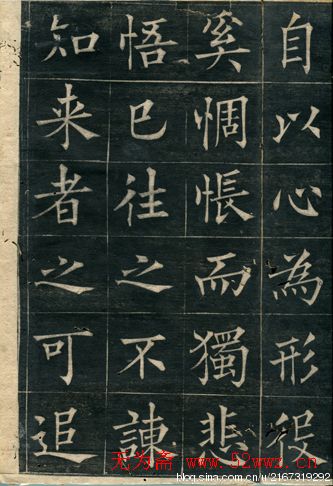 自以心為形役
奚惆悵而獨悲
悟已往之不諫
知来者之可追
无为斋 www.52wwz.cn
blog.sina.com.cn/u/2167319292